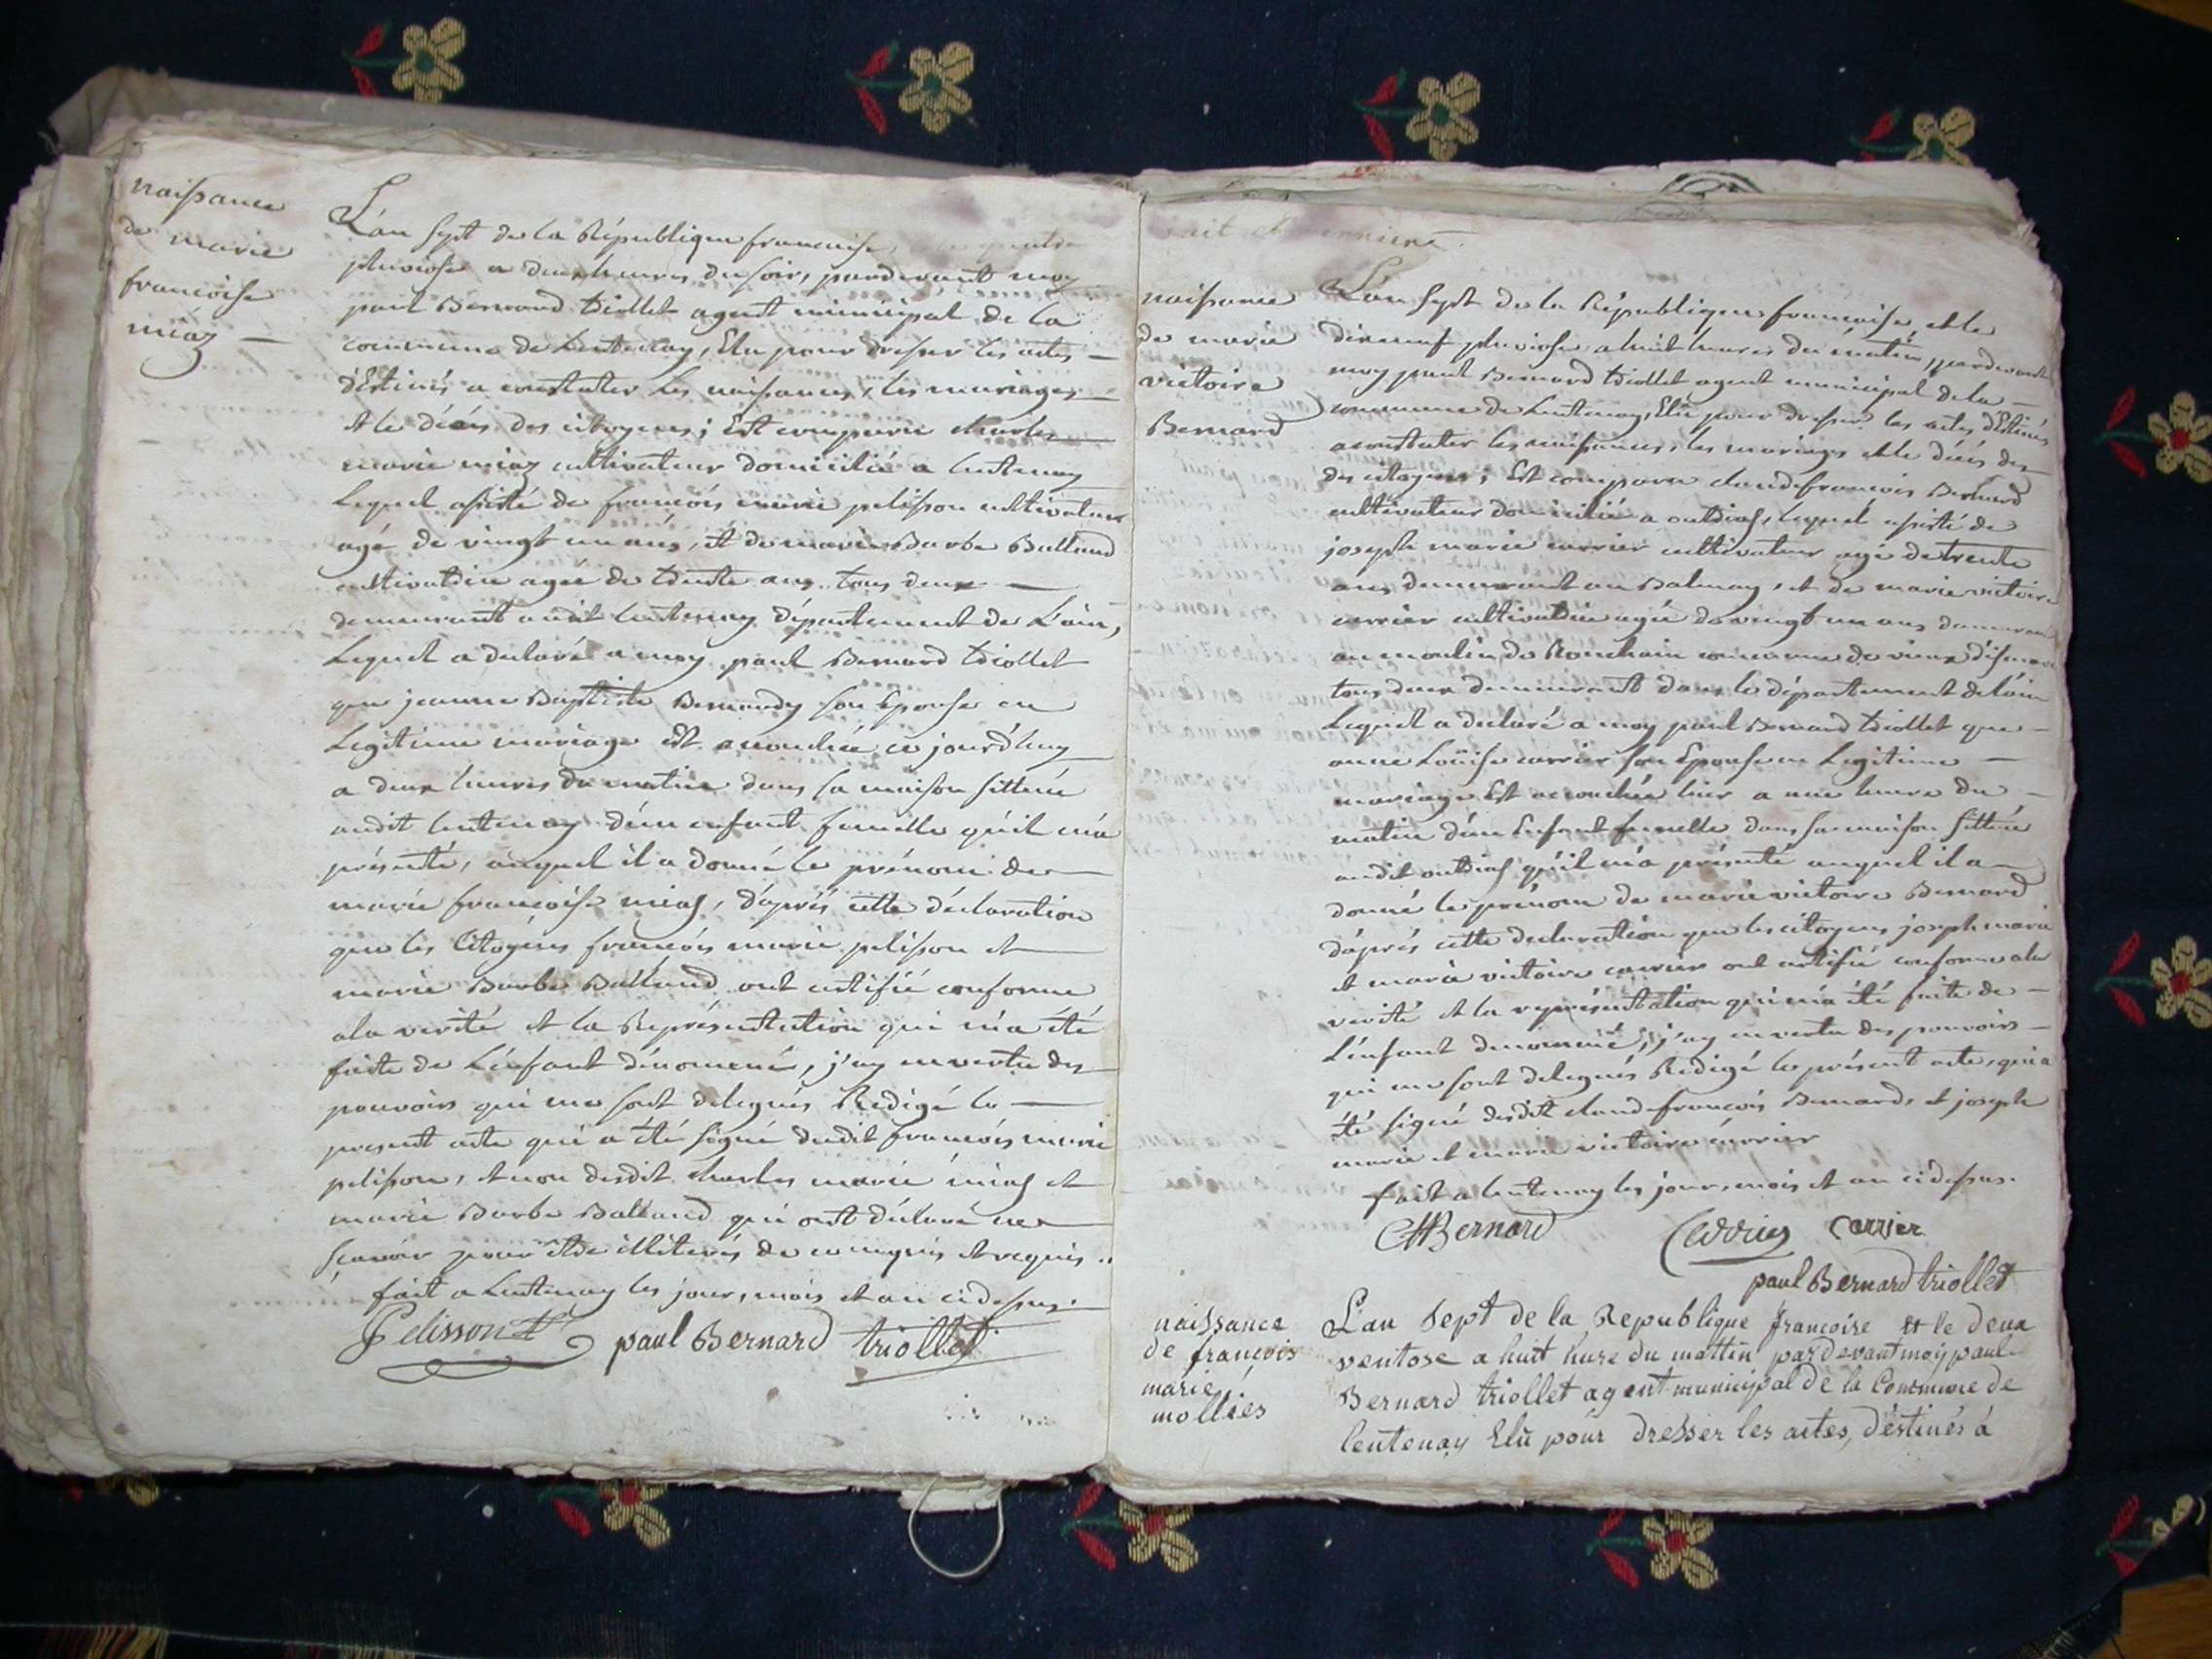 naissance
de marie
francoise
miaz
L'an sept de la République francaise, le quatre
pluviose a deux heures du soir, pardevant moy
paul Bernard triollet agent municipal de la
commune de Lentenay, Elu pour dresser les actes
déstinés a constater les naissances, les mariages
et le décés des citoyens ; Est comparu charles
marie miaz cultivateur domicilié a lentenay
Lequel assisté de francois marie pelisson cultivateur
agé de vingt un ans, et de marie Barbe Balland
cultivatrice agée de trente ans tous deux
demeurant audit lentenay département de L'ain,
Lequel a déclaré a moy paul Bernard triollet
que jeanne Baptiste Bernardy son Epouse en
Legitime mariage est accouchée ce jourd'huy
a deux heures du matin dans sa maison sittuée
audit lentenay d'un enfant femelle qu'il m'a
présenté, auquel il a donné le prénom de
marie francoise miaz, d'aprés cette déclaration
que les Citoyens francois marie pelisson et
marie Barbe Balland ont certifié conforme
a la verité et la Représentation qui m'a été
faite de L'enfant dénommé, j'ay en vertu des
pouvoirs qui me sont delegués Redigé le
present acte qui a été signé dudit francois marie
pelisson, et non desdit charles marie miaz et
marie Barbe Balland qui ont déclaré ne
scavoir pour etre illiterés de ce enquis et requis.
fait a Lentenay les jour, mois et an ci dessus.
Pelisson paul Bernard triollet
naissance
de marie
victoire
Bernard
L'an sept de la République francaise et le
dixneuf pluviose a huit heures du matin, pardevant
moy paul Bernard triollet agent municipal de la
commune de Lentenay, Elu pour dresser les actes déstinés
a constater les naissances, les mariages et le décés des
des citoyens ; Est comparu claude francois Bernard
cultivateur domicilié a outriaz, lequel assisté de
joseph marie carrier cultivateur agé de trente
ans demeurant au Balmay, et de marie victoire
carrier cultivatrice agée de vingt un ans demeurant
au moulin de commune de vieux d'isenave
tous deux demeurant dans le département de l'ain
Lequel a declaré a moy paul Bernard triollet que
anne Loüise carrier son Epouse en Legitime
mariage Est accouchée hier a une heure du
matin d'un Enfant femelle dans sa maison sittuée
audit outriaz qu'il m'a présenté auquel il a
donné le prénom de marie victoire Bernard
d'aprés cette declaration que les citoyens joseph marie
et marie victoire carrier ont certifié conforme a la
verité et la représentation qui m'a été faite de
L'enfant denommé, j'ay en vertu des pouvoirs
qui me sont delegués Redigé le présent acte, qui a
été signé desdit claude francois Bernard, et joseph
marie et marie victoire carrier
fait a lentenay les jour, mois et an ci dessus.
Bernard Carrier carrier
paul Bernard triollet
naissance
de francois
marie
mollies
L'an sept de la Republique francoise et le deux
ventose a huit hure du mattin par devant moy paul
Bernard triollet agent municipal de la Commune de
lentenay Elû pour dresser les actes, déstinés à